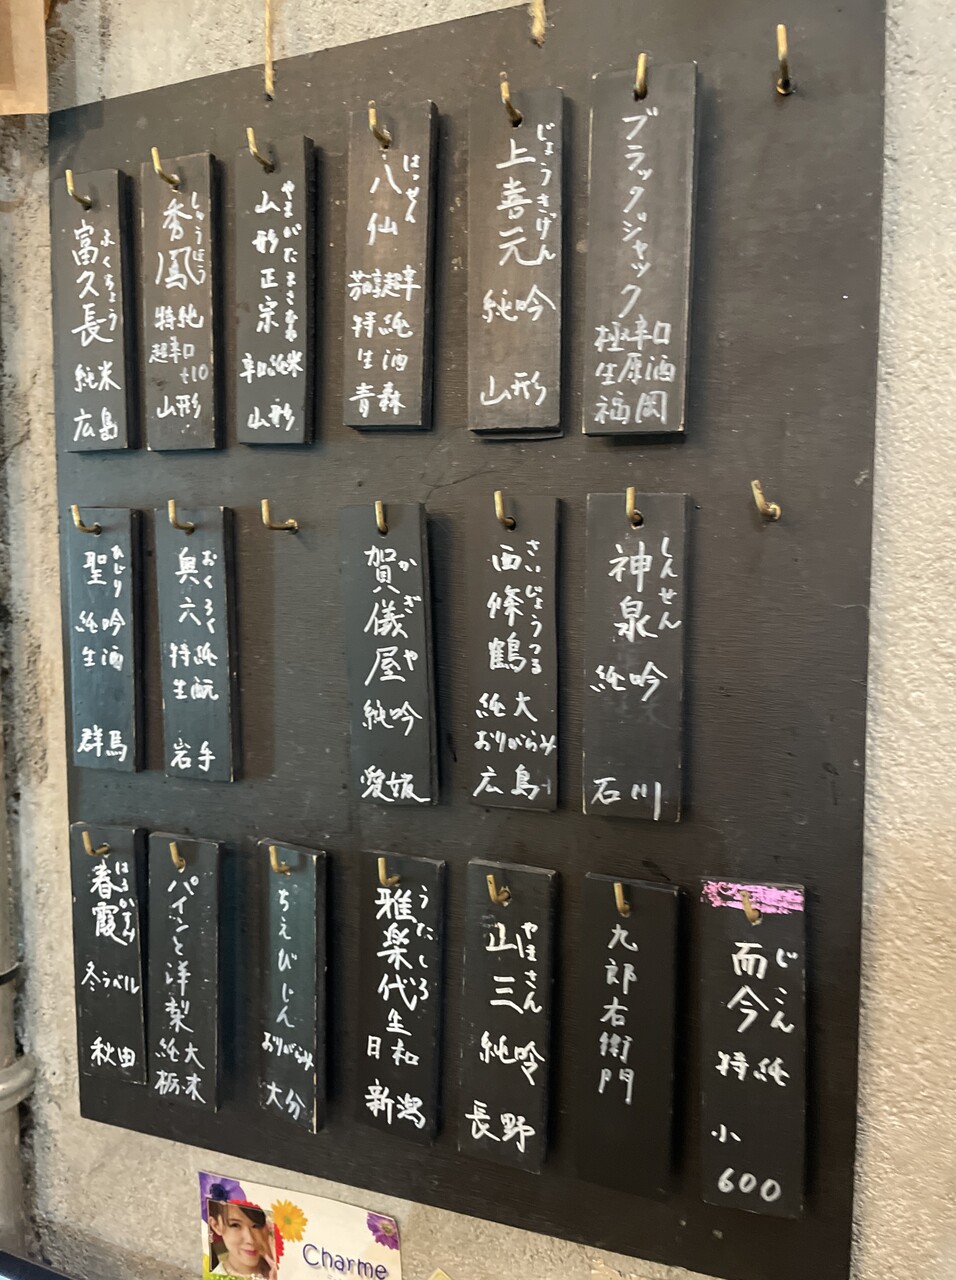 ブラックジャック
極辛口
生原酒
福岡
上喜元
じょうきげん
純吟
山形
八仙
はっせん
芳醇超辛
特純
生酒
青森
山形正宗
やまがたまさむね
辛口純米
山形
秀鳳
しゅうほう
特純
超辛口
+10
山形
富久長
ふくちょう
純米
広島
神泉
しんせん
純吟
石川
西條鶴
さいじょうつる
純大
おりがらみ
広島
賀儀屋
かぎや
純吟
愛媛
奥六
おくろく
特純
生酛
岩手
聖
ひじり
純吟
生酒
群馬
而今
じこん
特純
小
600
九郎右衛門
山三
やまさん
純吟
長野
雅楽代
うたしろ
生
日和
新潟
ちえびじん
おりがらみ
大分
パインと洋梨
純大
栃木
春霞
はるかすみ
冬ラベル
秋田
Charme